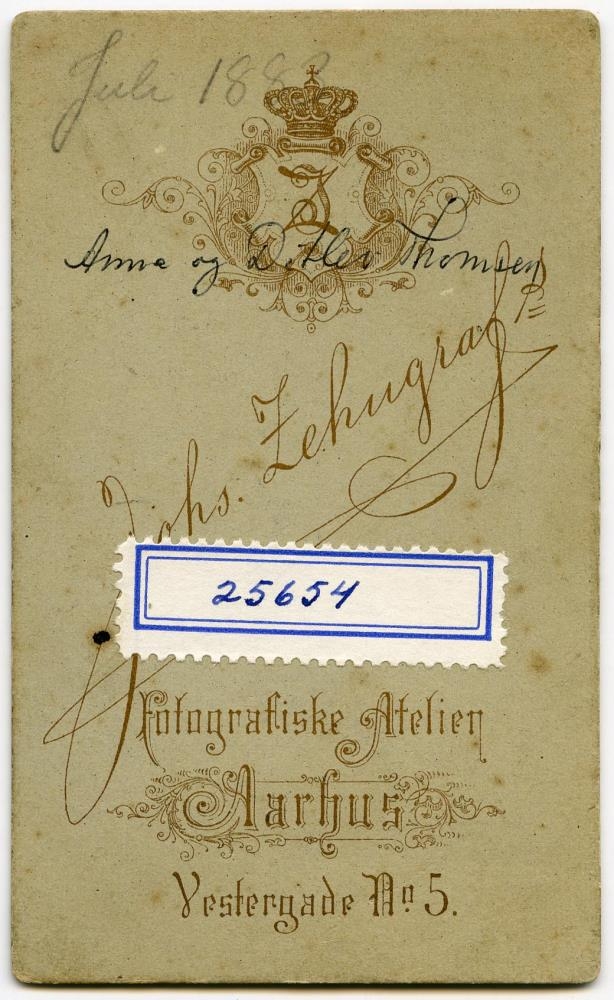 Juli 1883
Anna og Detlev Thomsen
Johs. Zehngraf
25654
Fotografiske Atelier
Aarhus
Vestergade No 5.